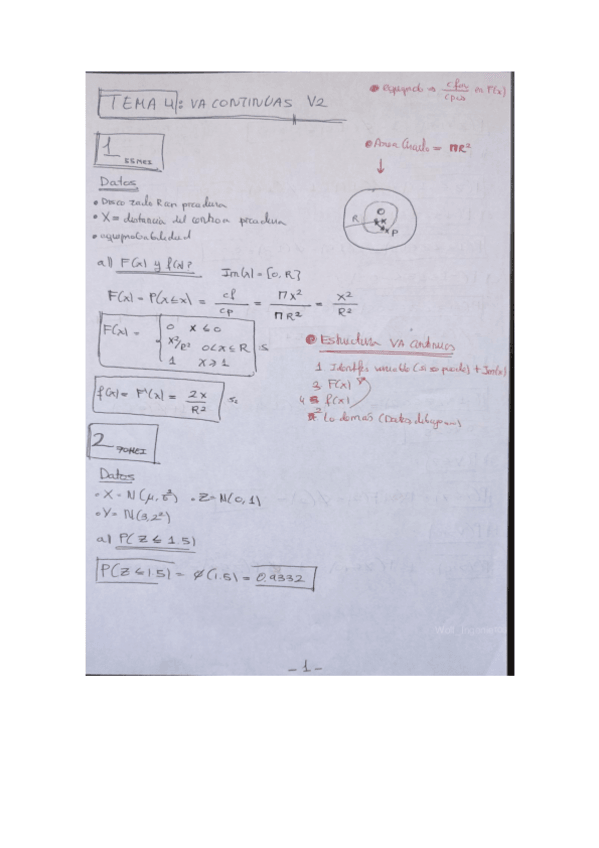 TEMA 4: VA CONTINUAS V2
• equiprob → cfav/cpos en F(x)
• Area Circulo = πR²
1 55MEI
Datos
• Disco radio R con picadura
• X = distancia del centro a picadura
• equiprobabilidad
R O x P
a) F(x) y f(x)? Im(x) = [0, R]
F(x) = P(X≤x) = cf/cp = πx²/πR² = x²/R²
F(x) = 0 x ≤ 0
x²/R² 0<x≤R si
1 x ≥ 1
• Estructura VA continuas
1 Identificar variable (si se puede) + Im(x)
3 F(x)
4 f(x)
2 lo demás (Datos, dibujo)
f(x) = F'(x) = 2x/R² si
2 90MEI
Datos
• X = N(μ, 5²) • Z = N(0,1)
• Y = N(3,2²)
a) P(Z ≤ 1.5)
P(Z ≤ 1.5) = φ(1.5) = 0.9332
- 1 -